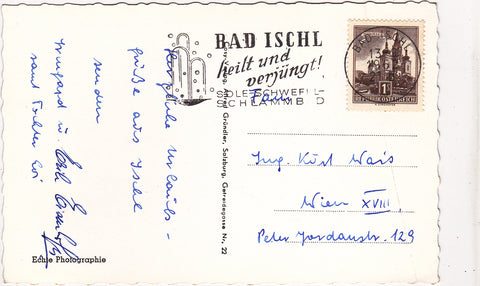 BAD ISCHL
heilt und
verjüngt!
SOLE-SCHWEFEL-
SCHLAMMBAD
BAD ISCHL
REPUBLIK ÖSTERREICH
Fam.
Ing. Kurt Wais
Wien XVIII,
Peter Jordanstr. 129
Herzliche Urlaubs-
grüße aus Ischl
senden
Irmgard u.
samt Tochter Evi
Gründler, Salzburg, Getreidegasse Nr. 22
Echte Photographie